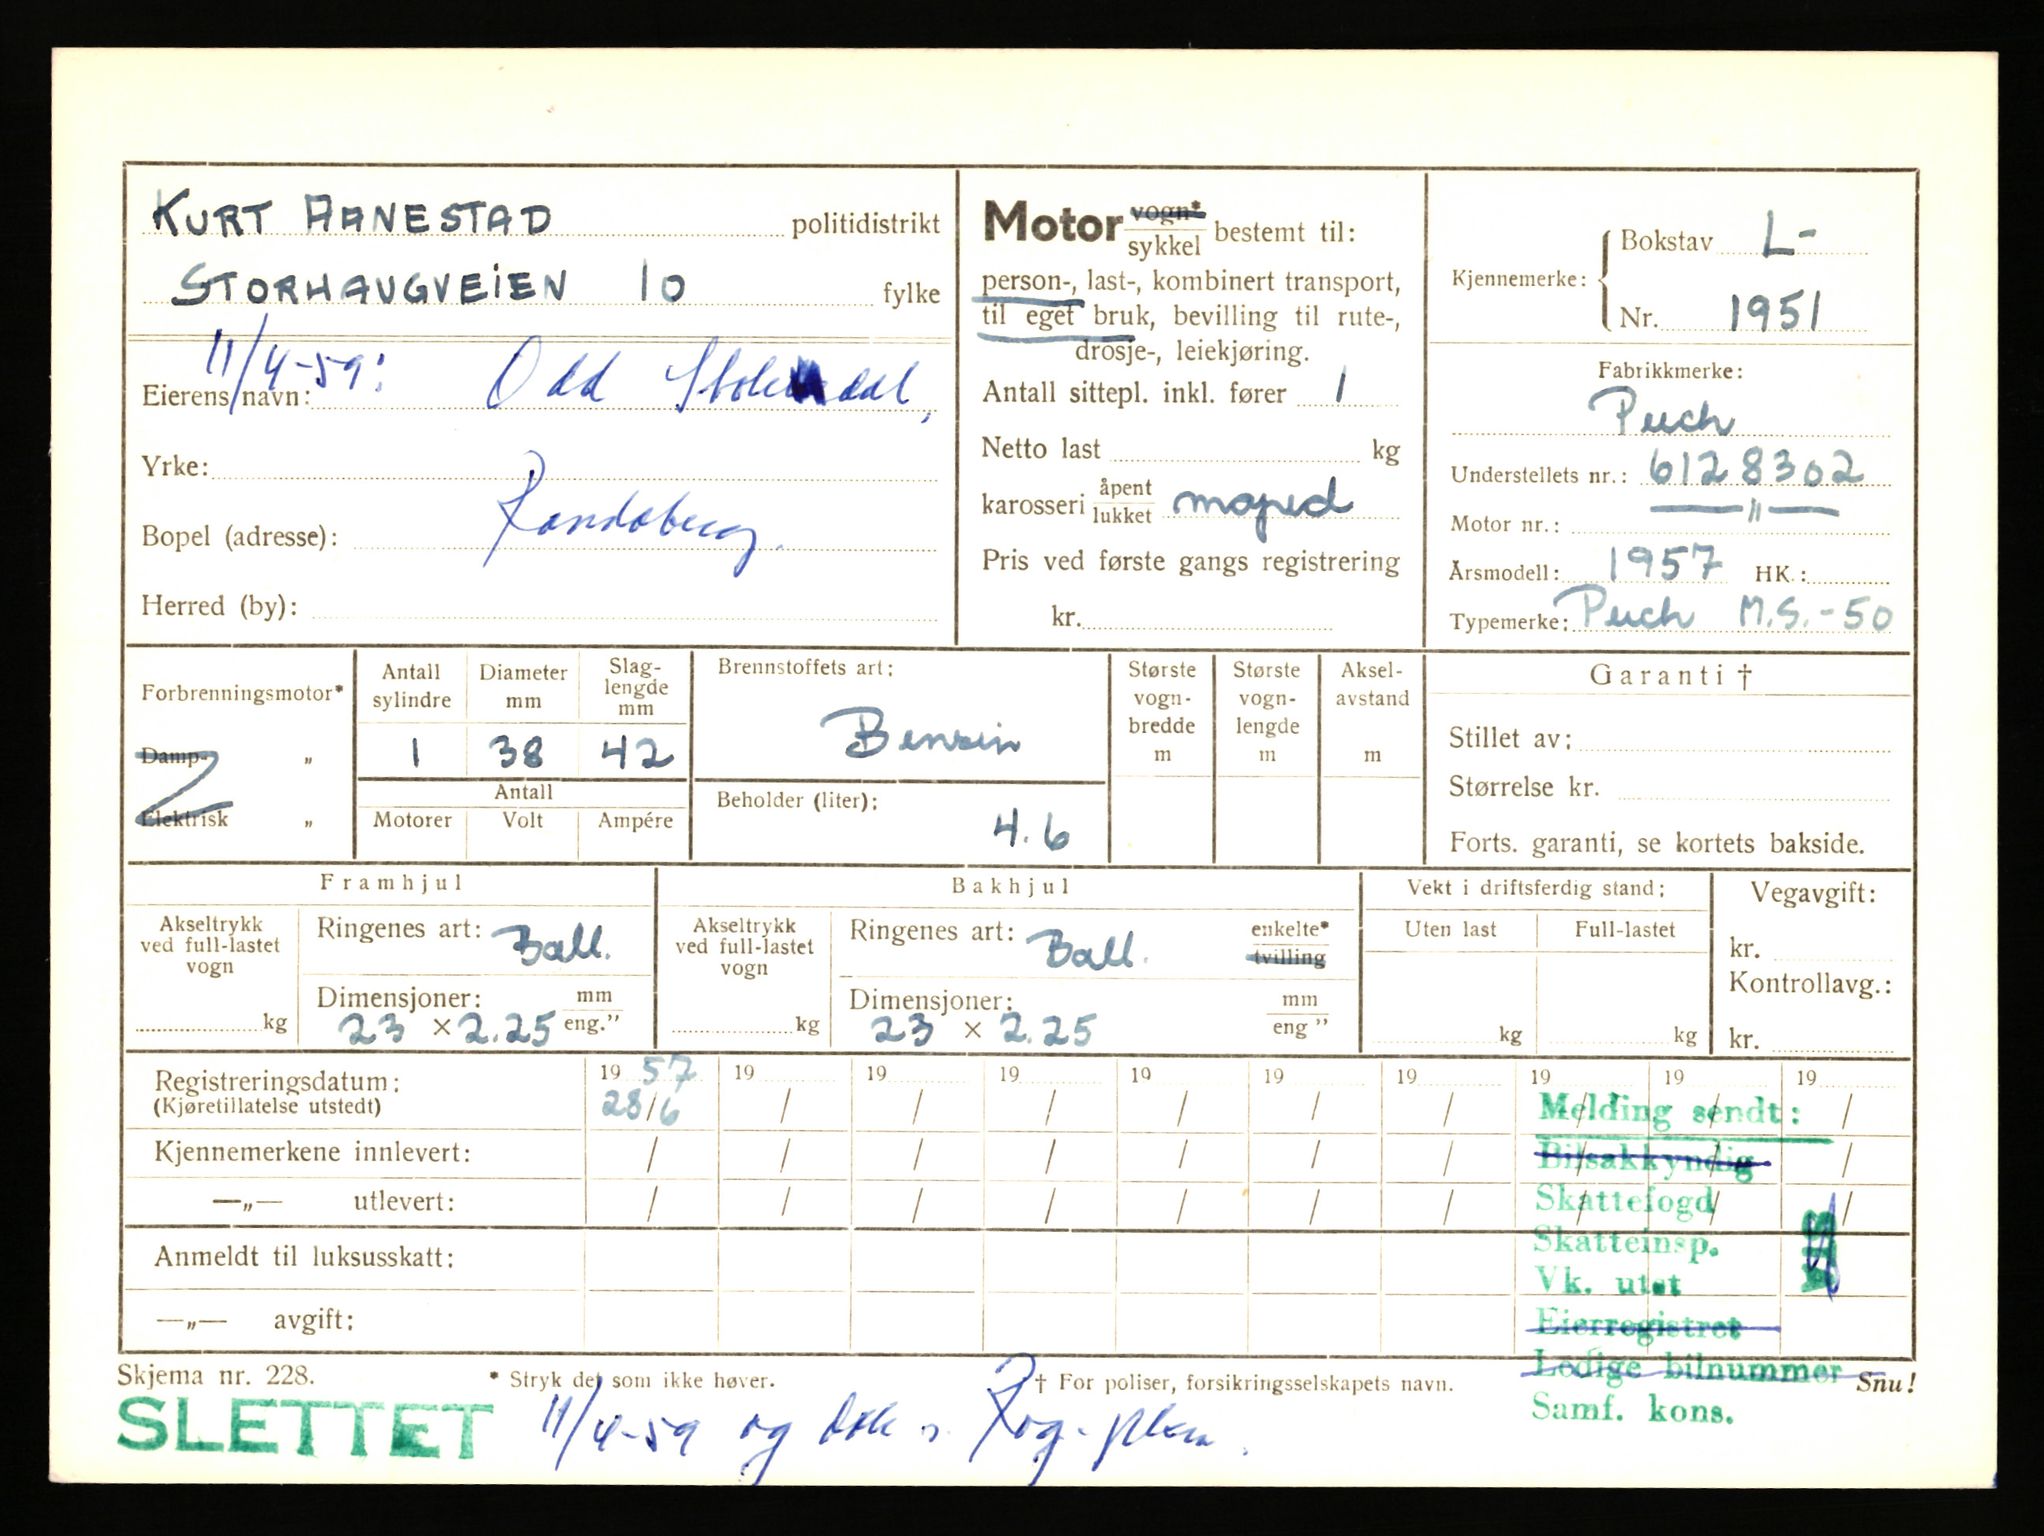 KURT AANESTAD politidistrikt
STORHAUGVEIEN 10 fylke
11/4-59:
Eierens navn: Odd
Yrke:
Bopel (adresse): Randaberg.
Herred (by):
Motor vogn* / sykkel bestemt til:
person-, last-, kombinert transport,
til eget bruk, bevilling til rute-,
drosje-, leiekjøring.
Antall sittepl. inkl. fører 1
Netto last kg
karosseri åpent / lukket moped
Pris ved første gangs registrering
kr.
Kjennemerke: Bokstav L-
Nr. 1951
Fabrikkmerke:
Puch
Understellets nr.: 6128302
Motor nr.: — " —
Årsmodell: 1957 HK.:
Typemerke: Puch M.S.-50
Forbrenningsmotor*
Damp- "
Elektrisk "
Antall sylindre
1
Diameter mm
38
Slag-lengde mm
42
Antall
Motorer Volt Ampére
Brennstoffets art:
Bensin
Beholder (liter):
4.6
Største vogn-bredde m
Største vogn-lengde m
Aksel-avstand m
Garanti †
Stillet av:
Størrelse kr.
Forts. garanti, se kortets bakside.
Framhjul
Akseltrykk ved full-lastet vogn
kg
Ringenes art: Ball.
Dimensjoner: mm
23 x 2.25 eng."
Bakhjul
Akseltrykk ved full-lastet vogn
kg
Ringenes art: Ball. enkelte*
tvilling
Dimensjoner: mm
23 x 2.25 eng "
Vekt i driftsferdig stand:
Uten last Full-lastet
kg kg
Vegavgift:
kr.
Kontrollavg.:
kr.
Registreringsdatum: 19 57 19 19 19 19 19 19 19 19 19
(Kjøretillatelse utstedt) 28/6 / / / / / / / / /
Kjennemerkene innlevert: / / / / / / / / /
—„— utlevert: / / / / / / / / / /
Anmeldt til luksusskatt:
—„— avgift:
Melding sendt:
Bilsakkyndig
Skattefogd
Skatteinsp.
Vk. utst
Eierregistret
Ledige bilnummer
Samf. kons.
Skjema nr. 228. * Stryk det som ikke høver. † For poliser, forsikringsselskapets navn. Snu!
SLETTET 11/4-59 og